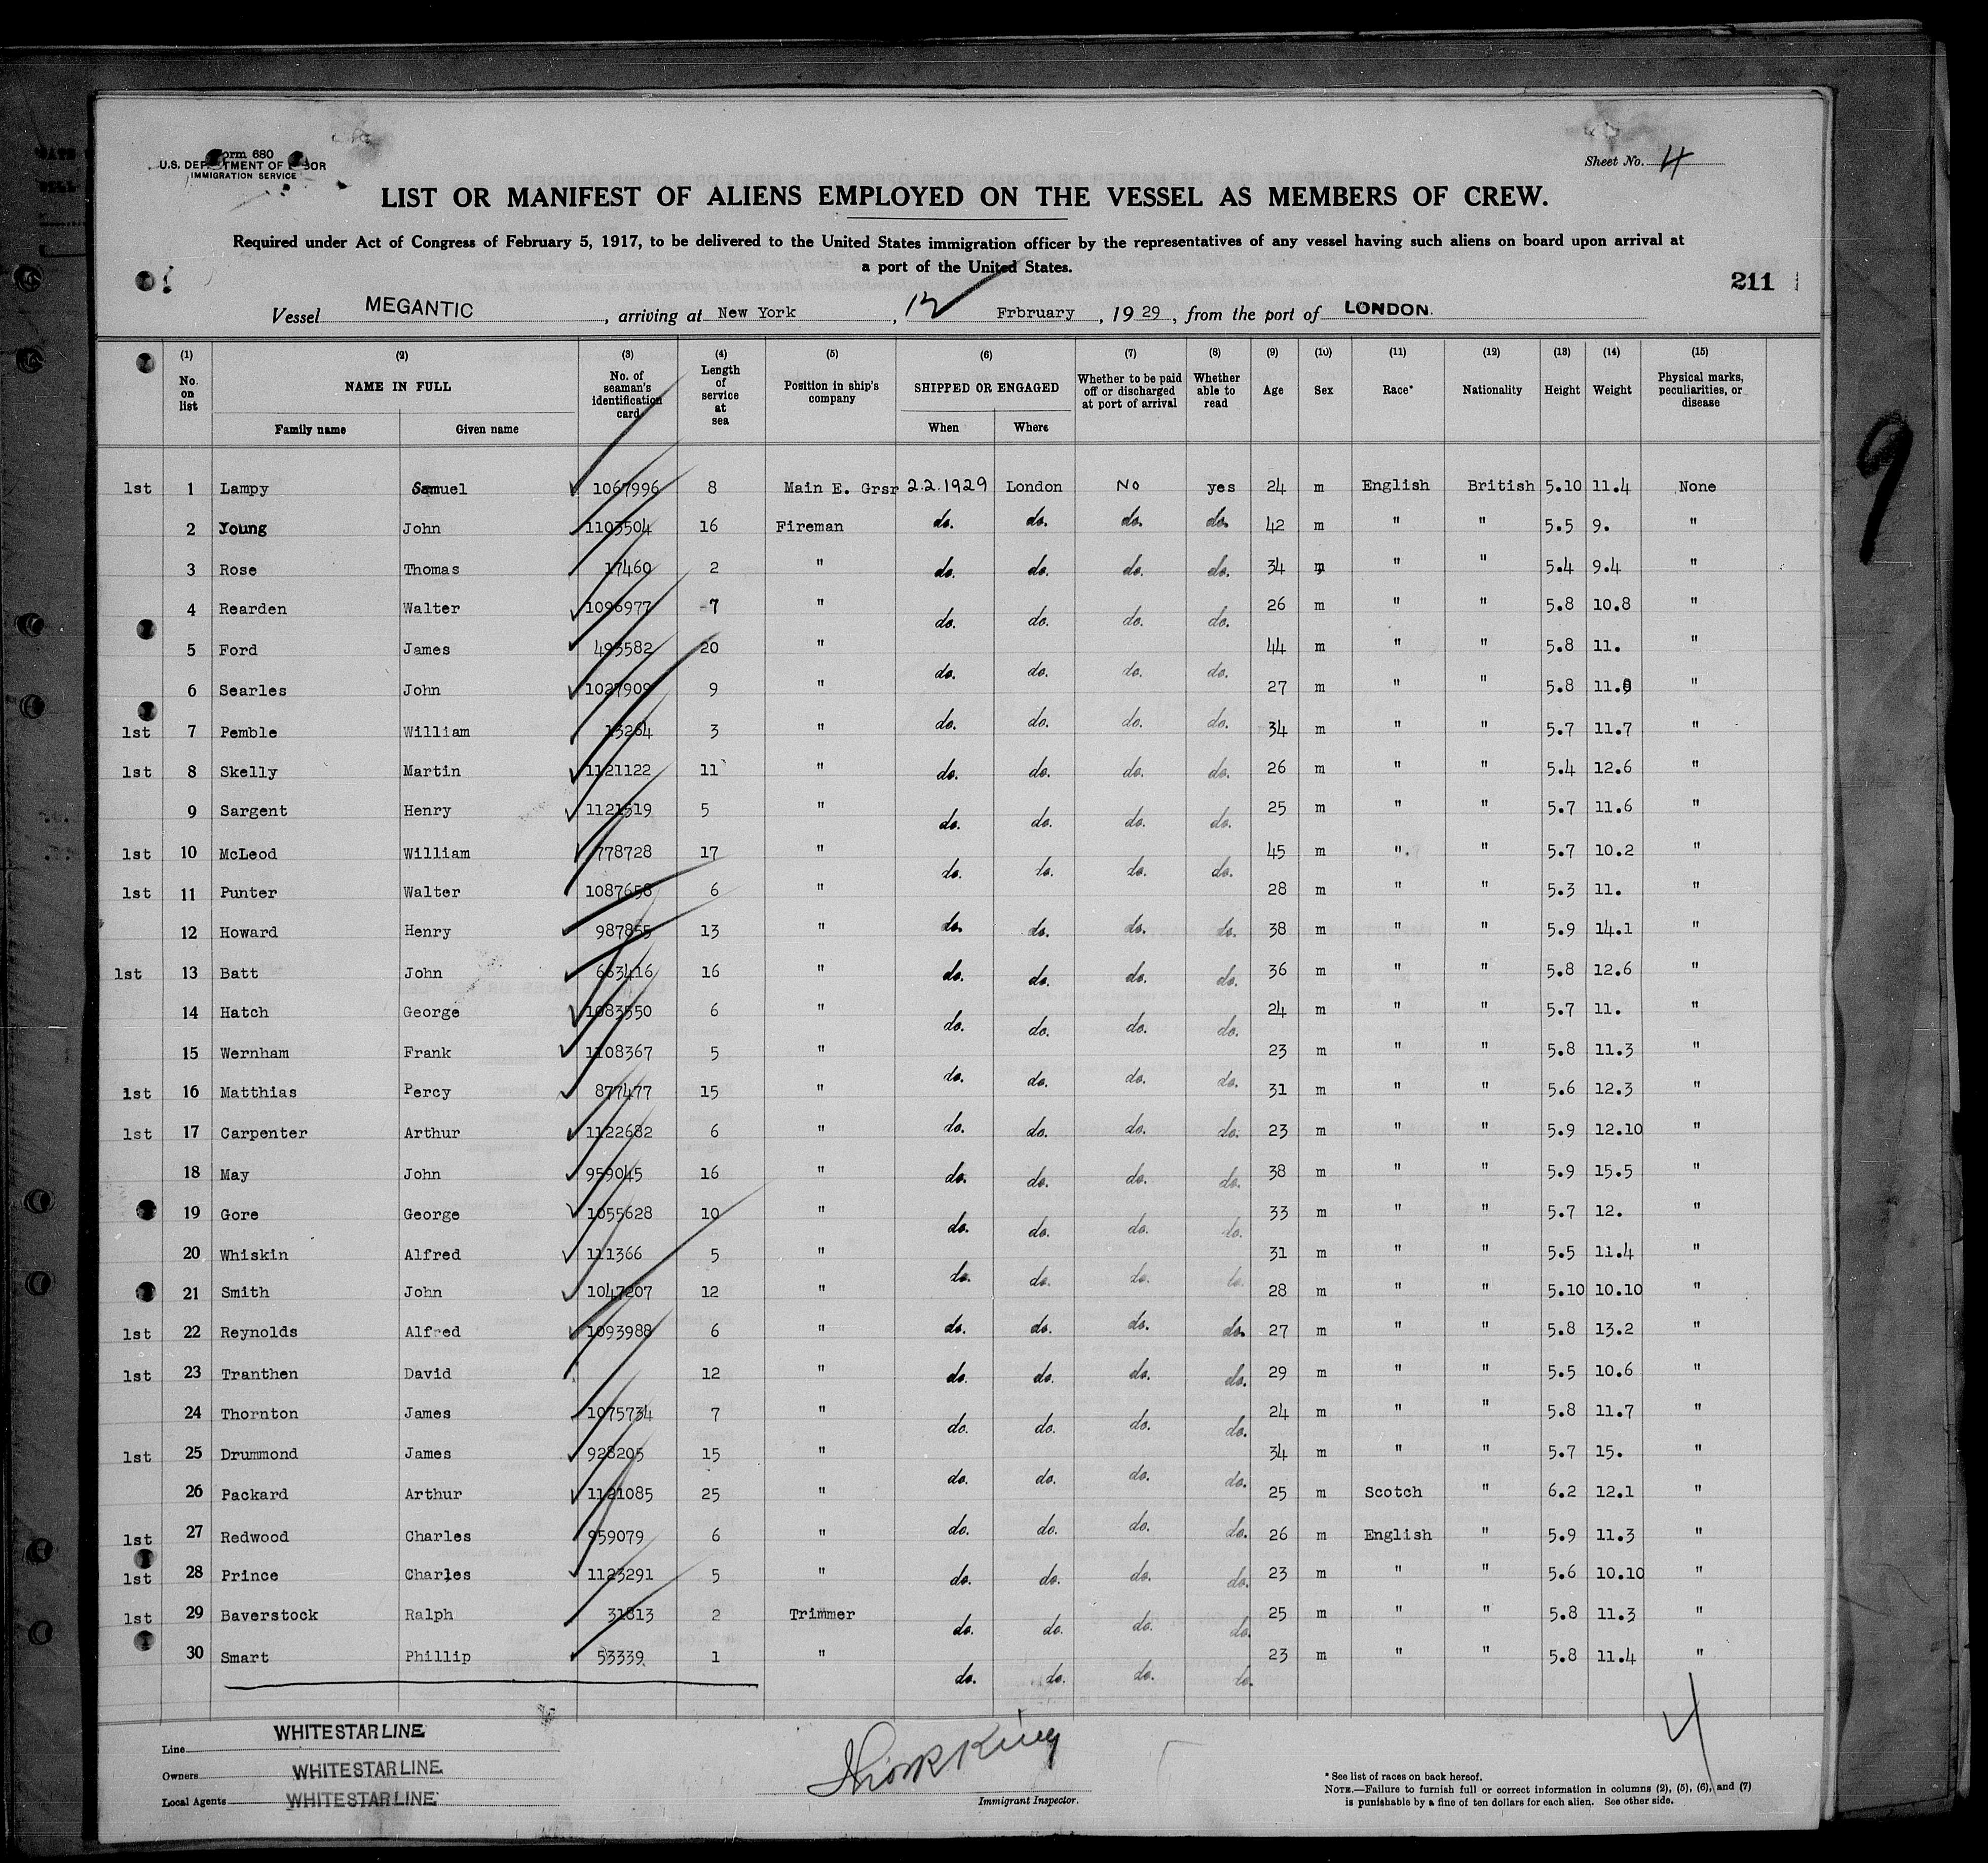 Form 680
U.S. DEPARTMENT OF LABOR
IMMIGRATION SERVICE
Sheet No. 4
LIST OR MANIFEST OF ALIENS EMPLOYED ON THE VESSEL AS MEMBERS OF CREW.
Required under Act of Congress of February 5, 1917, to be delivered to the United States immigration officer by the representatives of any vessel having such aliens on board upon arrival at
a port of the United States.
211
Vessel MEGANTIC, arriving at New York, 12 Frbruary, 1929, from the port of LONDON.
(1) (2) (3) (4) (5) (6) (7) (8) (9) (10) (11) (12) (13) (14) (15)
No. on list NAME IN FULL Family name Given name No. of seaman's identification card Length of service at sea Position in ship's company SHIPPED OR ENGAGED When Where Whether to be paid off or discharged at port of arrival Whether able to read Age Sex Race* Nationality Height Weight Physical marks, peculiarities, or disease
1st 1 Lampy Samuel 1067996 8 Main E. Grsr 2.2.1929 London No yes 24 m English British 5.10 11.4 None
2 Young John 1103504 16 Fireman do. do. do. do. 42 m " " 5.5 9. "
3 Rose Thomas 17460 2 " do. do. do. do. 34 m " " 5.4 9.4 "
4 Rearden Walter 1096977 7 " do. do. do. do. 26 m " " 5.8 10.8 "
5 Ford James 495582 20 " do. do. do. do. 44 m " " 5.8 11. "
6 Searles John 1027909 9 " do. do. do. do. 27 m " " 5.8 "
1st 7 Pemble William 13264 3 " do. do. do. do. 34 m " " 5.7 11.7 "
1st 8 Skelly Martin 1121122 11 " do. do. do. do. 26 m " " 5.4 12.6 "
9 Sargent Henry 1121519 5 " do. do. do. do. 25 m " " 5.7 11.6 "
1st 10 McLeod William 778728 17 " do. do. do. do. 45 m " " 5.7 10.2 "
1st 11 Punter Walter 1087658 6 " 28 m " " 5.3 11. "
12 Howard Henry 987855 13 " do. do. do. do. 38 m " " 5.9 14.1 "
1st 13 Batt John 663416 16 " do. do. do. do. 36 m " " 5.8 12.6 "
14 Hatch George 1083550 6 " do. do. do. do. 24 m " " 5.7 11. "
15 Wernham Frank 1108367 5 " do. do. do. do. 23 m " " 5.8 11.3 "
1st 16 Matthias Percy 877477 15 " 31 m " " 5.6 12.3 "
1st 17 Carpenter Arthur 1122682 6 " do. do. do. do. 23 m " " 5.9 12.10 "
18 May John 959045 16 " do. do. do. do. 38 m " " 5.9 15.5 "
19 Gore George 1055628 10 " do. do. do. do. 33 m " " 5.7 12. "
20 Whiskin Alfred 111366 5 " do. do. do. do. 31 m " " 5.5 11.4 "
21 Smith John 1047207 12 " 28 m " " 5.10 10.10 "
1st 22 Reynolds Alfred 1093988 6 " do. do. do. do. 27 m " " 5.8 13.2 "
1st 23 Tranthen David 12 " do. do. do. do. 29 m " " 5.5 10.6 "
24 Thornton James 1075734 7 " do. do. do. do. 24 m " " 5.8 11.7 "
1st 25 Drummond James 928205 15 " do. do. do. do. 34 m " " 5.7 15. "
26 Packard Arthur 1121085 25 " 25 m Scotch " 6.2 12.1 "
1st 27 Redwood Charles 959079 6 " do. do. do. do. 26 m English " 5.9 11.3 "
1st 28 Prince Charles 1123291 5 " do. do. do. do. 23 m " " 5.6 10.10 "
1st 29 Baverstock Ralph 31813 2 Trimmer do. do. do. do. 25 m " " 5.8 11.3 "
30 Smart Phillip 53339 1 " do. do. do. do. 23 m " " 5.8 11.4 "
Line WHITE STAR LINE
Owners WHITE STAR LINE
Local Agents WHITE STAR LINE
Immigrant Inspector.
4
* See list of races on back hereof.
NOTE.—Failure to furnish full or correct information in columns (2), (5), (6), and (7)
is punishable by a fine of ten dollars for each alien. See other side.
9